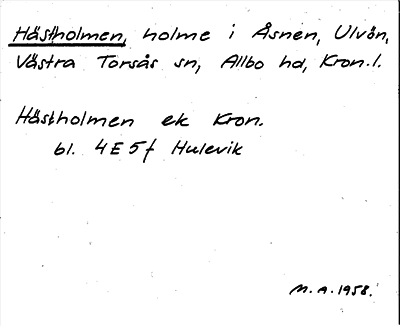 Hästholmen, holme i Åsnen, Ulvön,
Västra Torsås sn, Allbo hd, Kron. l.
Hästholmen ek Kron.
bl. 4E5f Hulevik
M.A. 1958.